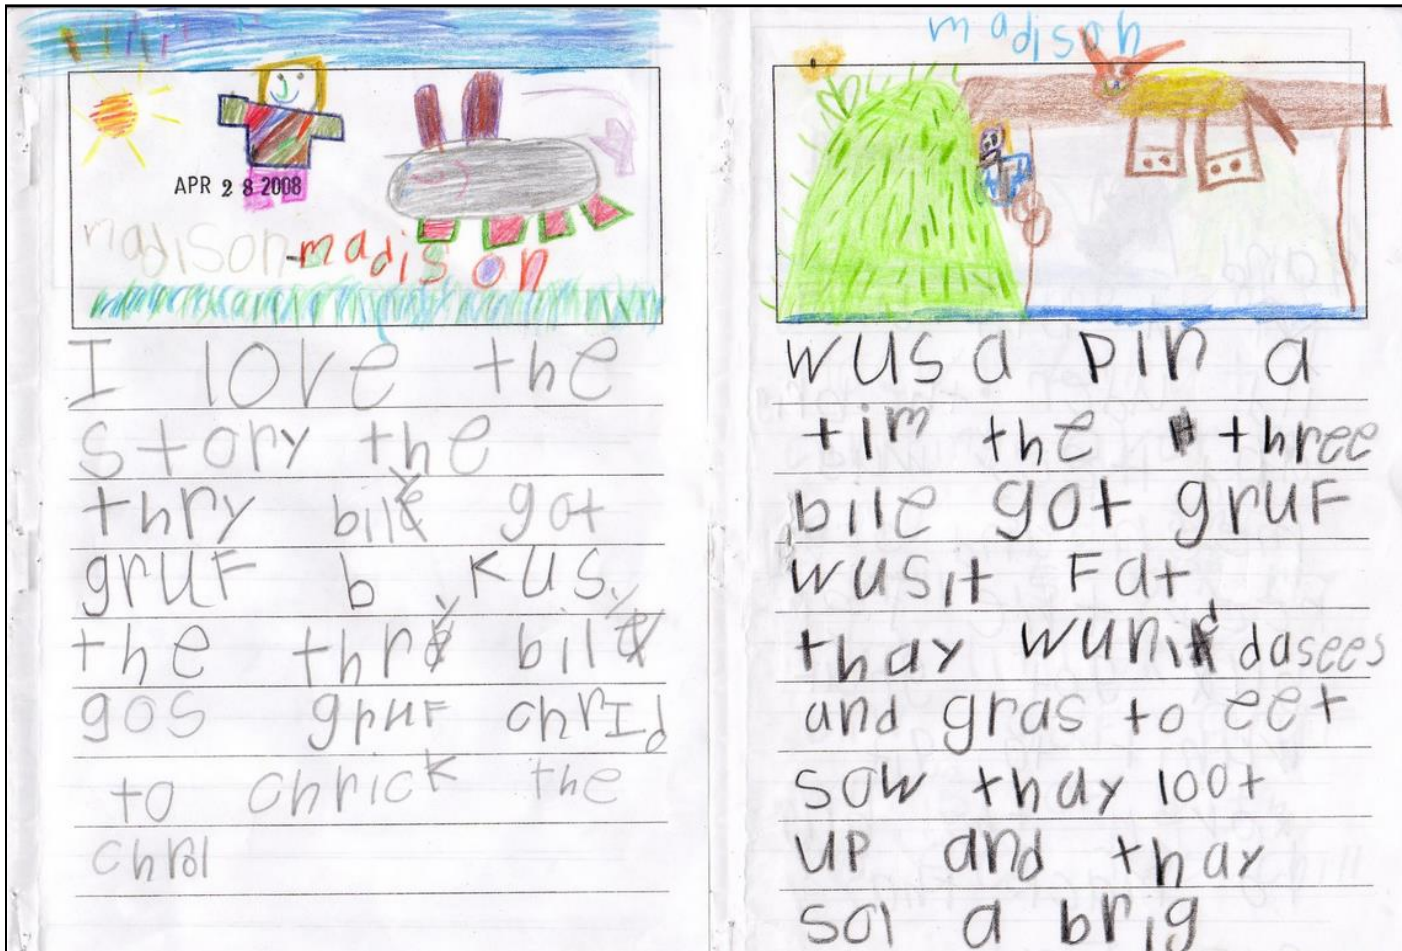 APR 28 2008
madison-madison
I love the
story the
thry bily got
gruf b kus
the thry bily
gos gruf chrid
to chrick the
chrol
madison
wus a pin a
tim the three
bile got gruf
wusit fat
thay wunid dasees
and gras to eet
sow thay loot
up and thay
sol a brig